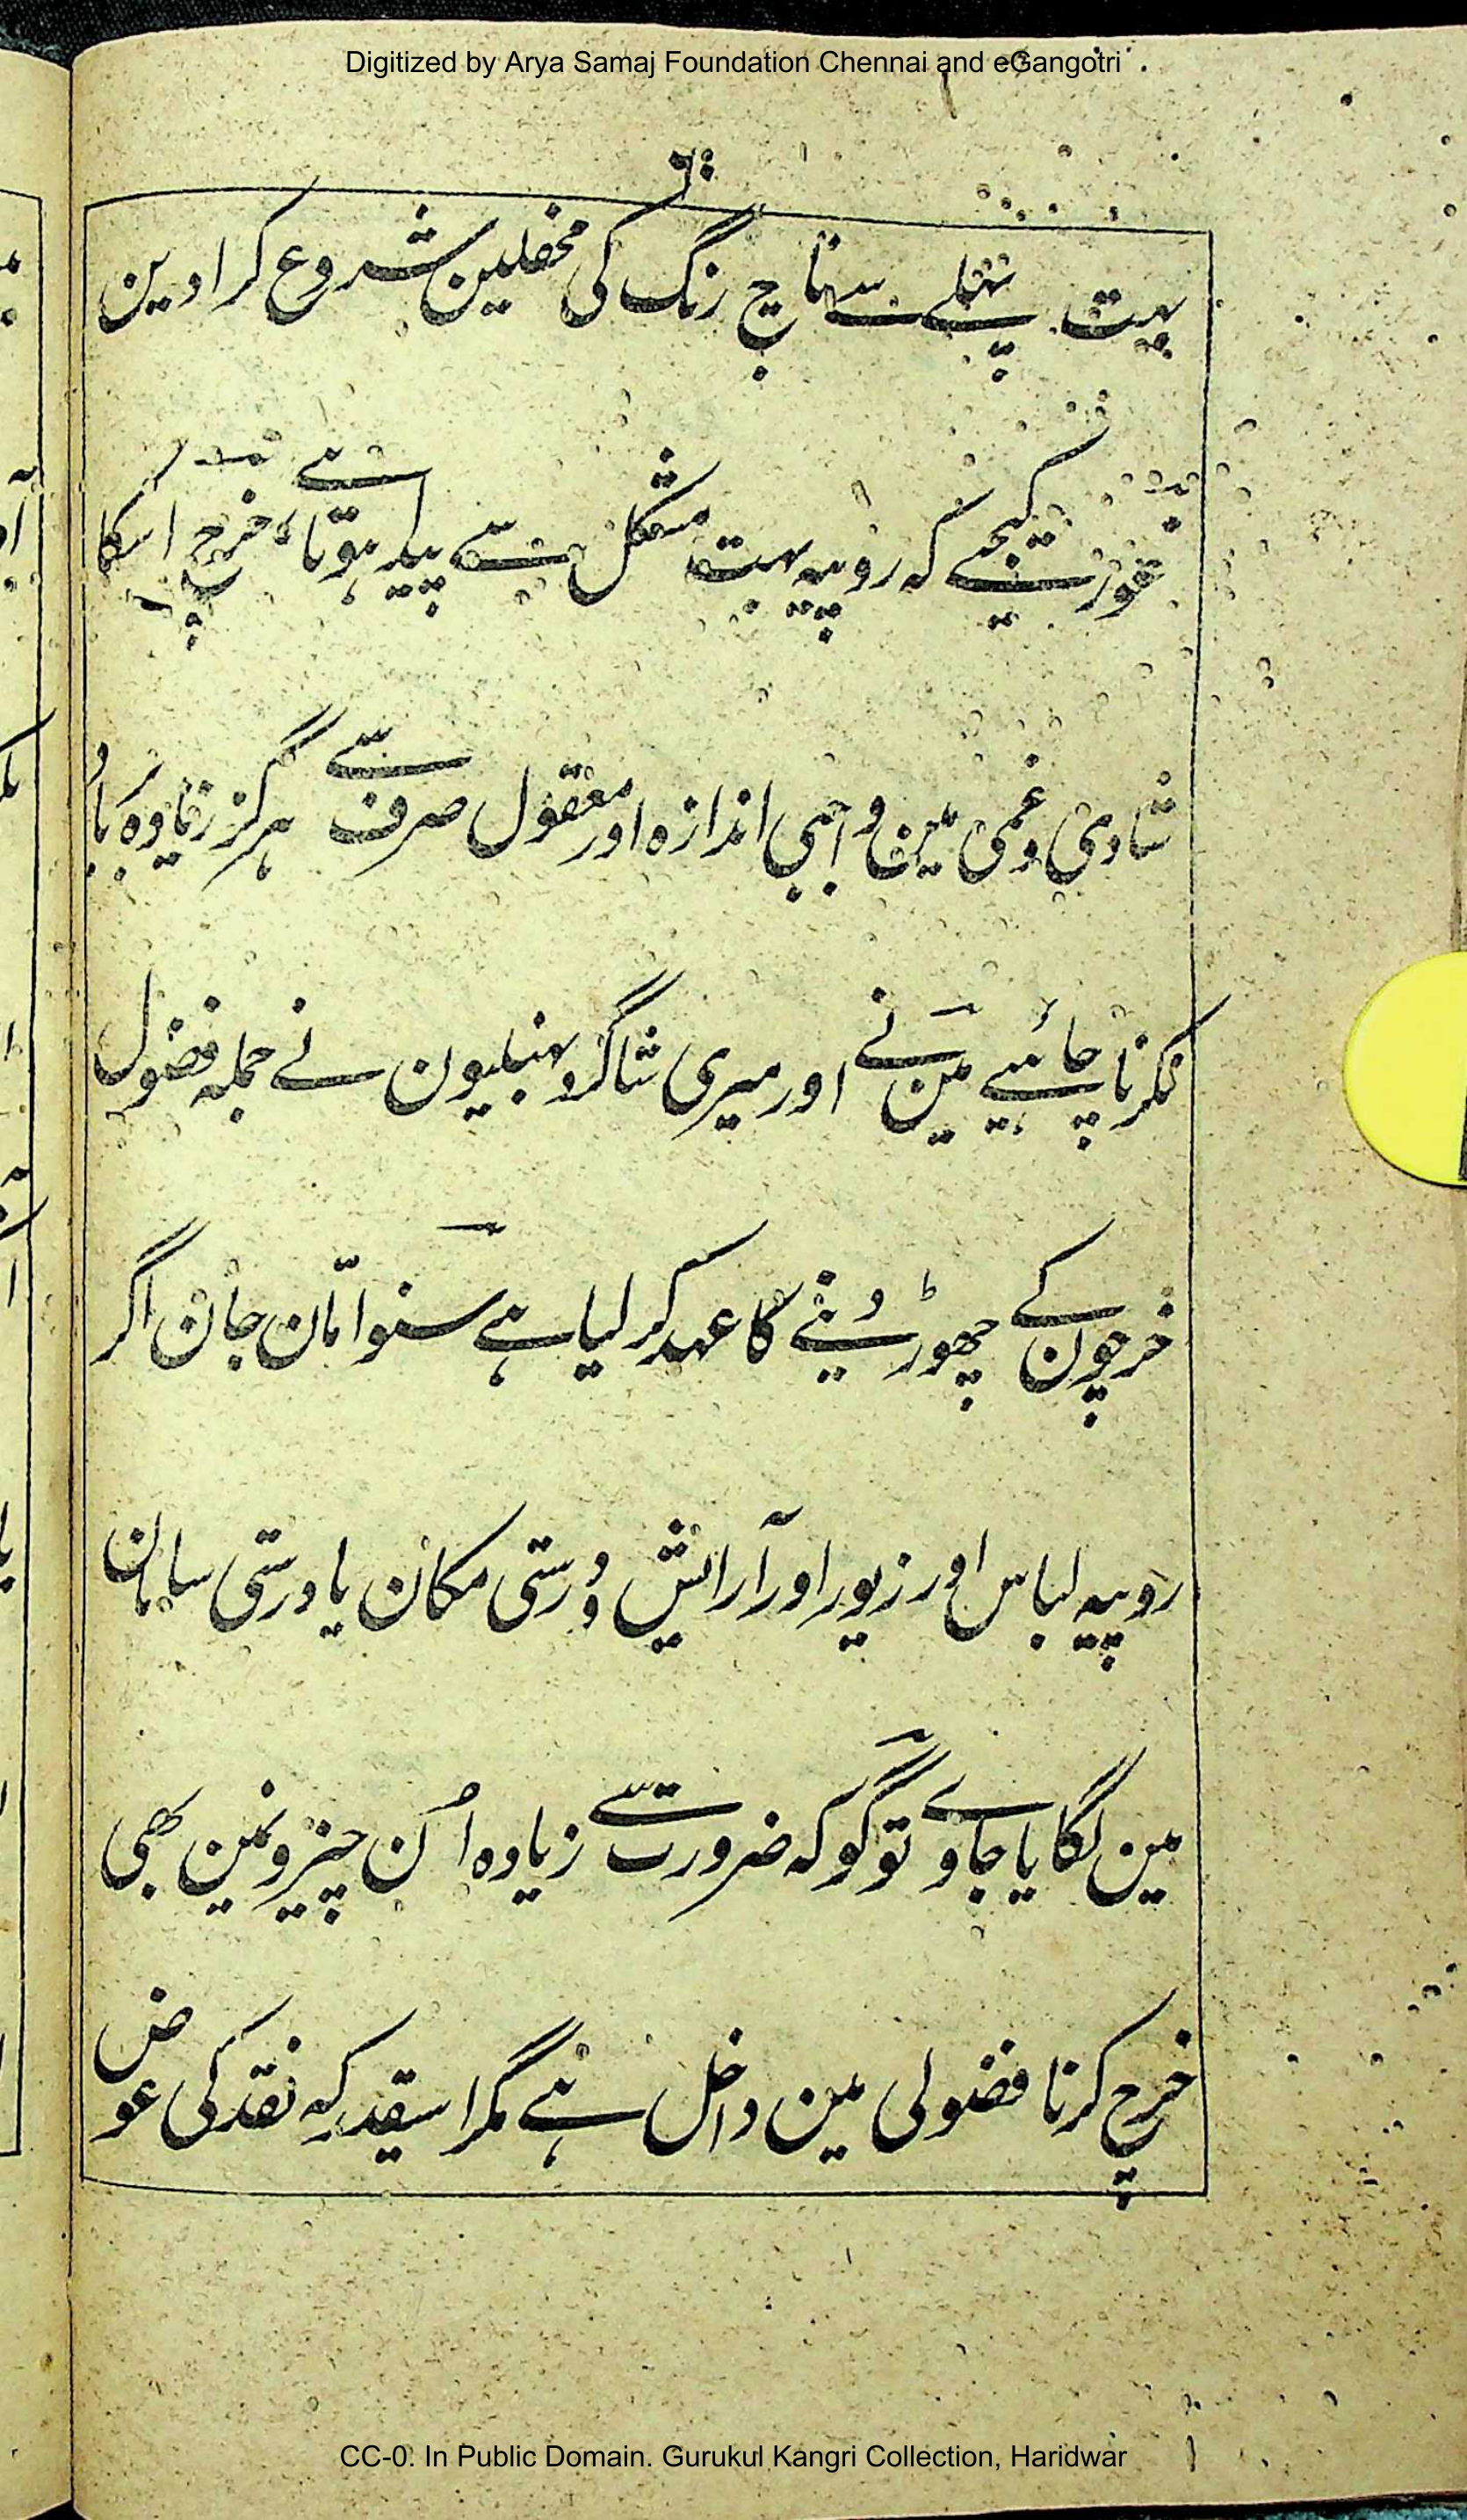 Digitized by Arya Samaj Foundation Chennai and eGangotri
بہت پہلے سے ناچ رنگ کی محفلین شروع کرا دین
غور کیجیے کہ روپیہ بہت مشکل سے پیدا ہوتا ہے خرچ اسکا
شادی و غمی مین واجبی اندازہ اور معقول صرف سے ہرگز زیادہ
نکرنا چاہیے مین نے اور میری شاگرد سہیلیون نے جملہ فضول
خرچون کے چھوڑ دینے کا عہد کر لیا ہے سنو امّان جان اگر
روپیہ لباس اور زیور اور آرایش و دُرستی مکان یا درستی سامان
مین لگایا جاوے تو گو کہ ضرورت سے زیادہ اُن چیزونمین بھی
خرچ کرنا فضولی مین داخل ہے مگر اسیقدر کہ نقد کی عوض
CC-0. In Public Domain. Gurukul Kangri Collection, Haridwar